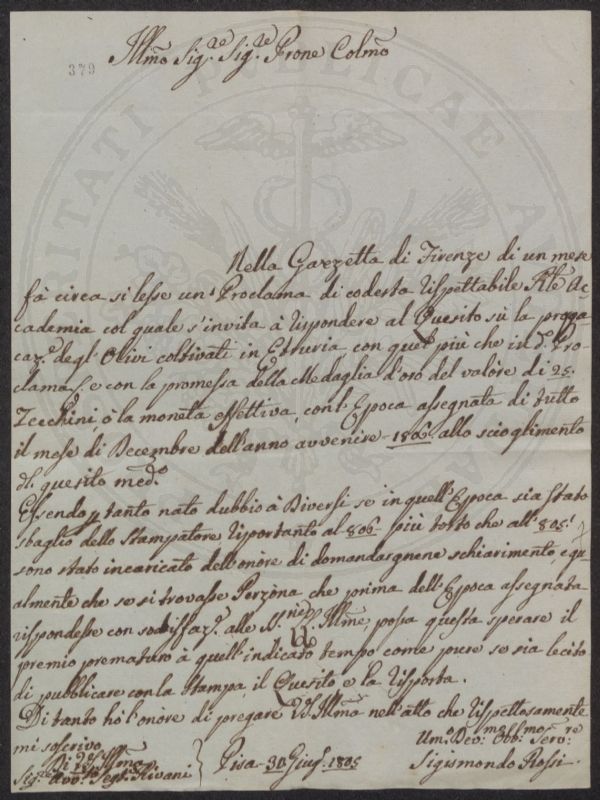 379
Illmo Sigre Sigre Prone Colmo
Nella Gazzetta di Firenze di un mese
fà circa si lesse un Proclama di codesta Rispettabile Rle Ac-
cademia col quale s'invita à rispondere al Quesito sù la propaga
caze degl'Olivi coltivati in Etruria con quel più che in do Pro-
clama, e con la promessa della Medaglia d'oro del valore di 25.
Zecchini, o la moneta effettiva, con l'Epoca assegnata di tutto
il mese di Decembre dell'anno avvenire 1806. allo scioglimento
del quesito medo
Essendo p tanto nato dubbio à Diversi se in quell'Epoca sia stato
sbaglio dello Stampatore riportanto al 806. più tosto che all' 805.
sono stato incaricato dell'onore di domandargnene schiarimento, equ-
almente che se si trovasse Perzona che prima dell'Epoca assegnata
rispondesse con sodisfaze alle Illme, possa questa sperare il
premio prematuro à quell'indicato tempo come pure se sia lecito
di pubblicare con la Stampa, il Quesito e la Risposta.
Di tanto hò l'onore di pregare VS Illma nell'atto che rispettosamente
mi soscrivo
Di VS Illma
Sigre Avvo Segro Rivani
Pisa 30 Giugo 1805
Umo Devmo Obbmo Servre
Sigismondo Rossi
PUBLICAE